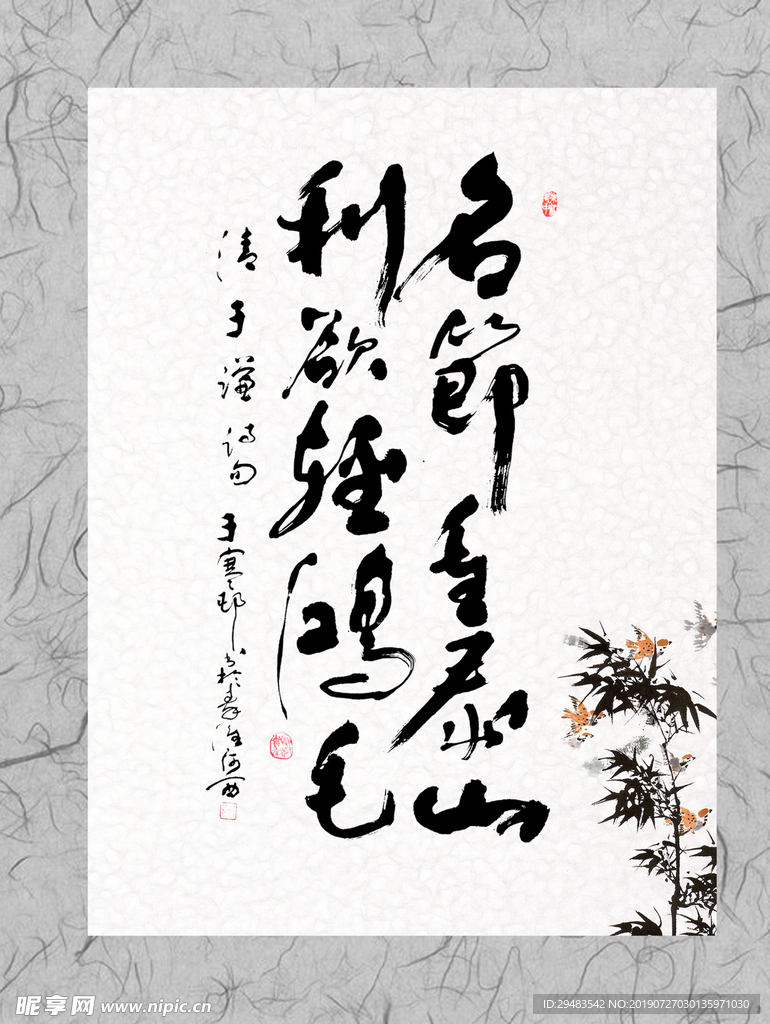 名節重泰山
利欲輕鴻毛
清于谦诗句
于寒邨书於
昵享网 www.nipic.cn
ID:29483542 NO:20190727030135971030